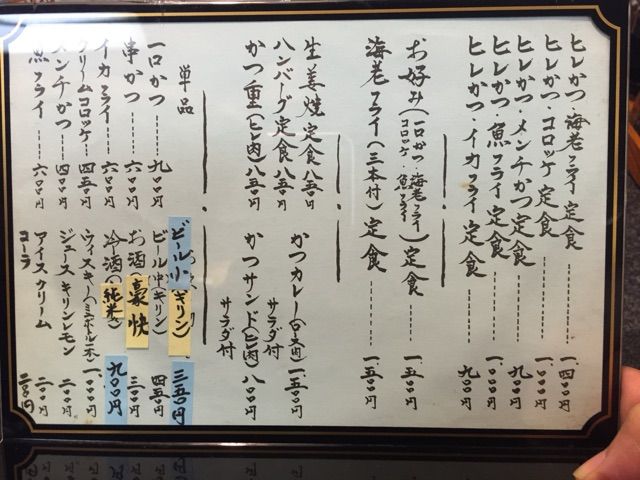 ヒレかつ・海老フライ定食 ---- 一、四〇〇円
ヒレかつ・コロッケ定食 ---- 一、〇〇〇円
ヒレかつ・メンチかつ定食 ---- 九〇〇円
ヒレかつ・魚フライ定食 ---- 一、〇〇〇円
ヒレかつ・イカフライ定食 ---- 九〇〇円
お好み(一口かつ・海老フライ コロッケ・魚フライ)定食 ---- 一、五〇〇円
海老フライ(三本付)定食 ---- 一、五〇〇円
生姜焼定食 八五〇円
ハンバーグ定食 八五〇円
かつ重(ヒレ肉) 八五〇円
かつカレー(ロース肉) 一、五〇〇円
サラダ付
かつサンド(ヒレ肉) 八〇〇円
サラダ付
単品
一口かつ ---- 九〇〇円
串かつ ---- 六〇〇円
イカフライ ---- 六〇〇円
クリームコロッケ ---- 四五〇円
メンチかつ ---- 六〇〇円
魚フライ ---- 六〇〇円
ビール小(キリン) 三五〇円
ビール中(キリン) 四五〇円
お酒 豪快 三〇〇円
冷酒(純米) 九〇〇円
ウィスキー(ミニボトル・氷) 一、〇〇〇円
ジュースキリンレモン 二〇〇円
アイスクリーム 二〇〇円
コーラ 二〇〇円